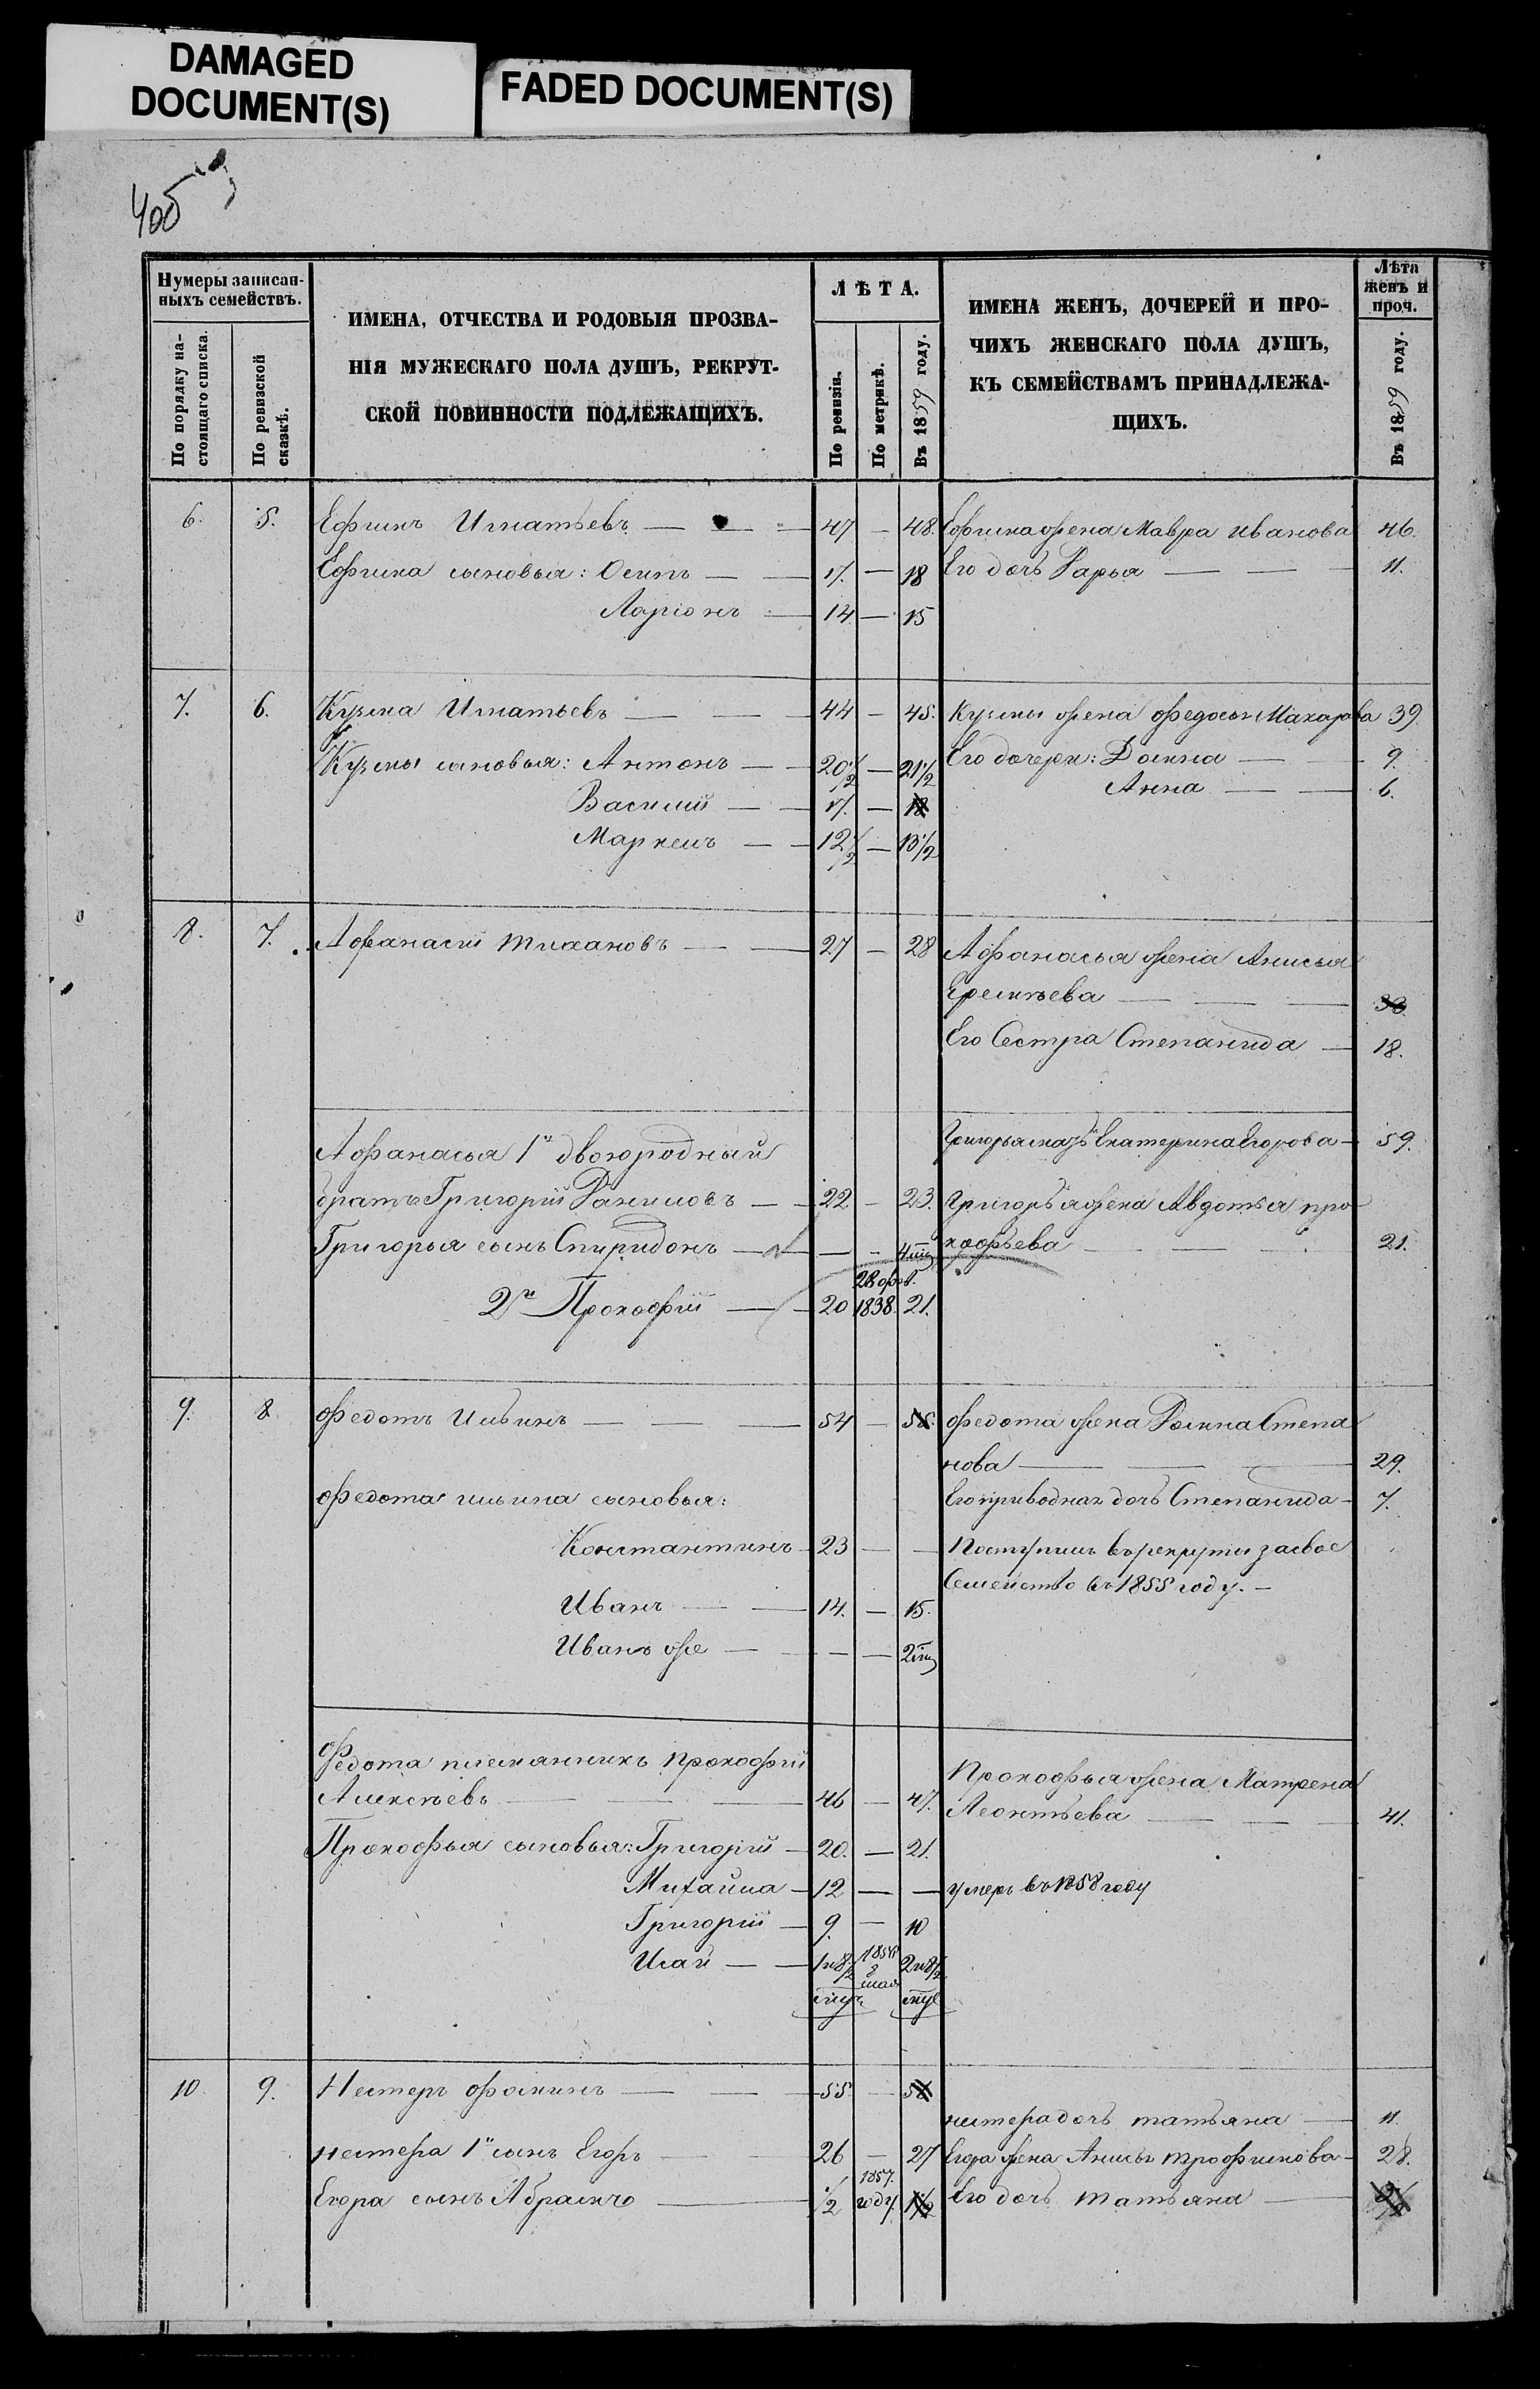 DAMAGED
DOCUMENT(S)
FADED DOCUMENT(S)
Нумеры записан-
ныхъ семействъ.
По порядку на-
стоящаго списка.
По ревизской
сказкѣ.
ИМЕНА, ОТЧЕСТВА И РОДОВЫЯ ПРОЗВА-
НІЯ МУЖЕСКАГО ПОЛА ДУШЪ, РЕКРУТ-
СКОЙ ПОВИННОСТИ ПОДЛЕЖАЩИХЪ.
ЛѢТА.
По ревизіи.
По метрикѣ.
Въ 1859 году.
ИМЕНА ЖЕНЪ, ДОЧЕРЕЙ И ПРО-
ЧИХЪ ЖЕНСКАГО ПОЛА ДУШЪ,
КЪ СЕМЕЙСТВАМЪ ПРИНАДЛЕЖА-
ЩИХЪ.
Лѣта
женъ и
проч.
Въ 1859 году.
6. 5. Ефимъ Игнатьевъ — — 47 — 48. Ефима жена Мавра Иванова 46.
Ефима сыновья: Осипъ — — 17. — 18 Его дочь Дарья — — — 11.
Ларіонъ — 14 — 15
7. 6. Кузма Игнатьевъ — — — 44 — 45. Кузмы жена Федосья Макарова 39
Кузмы сыновья: Антонъ — — 20 1/2 — 21 1/2 Его дочери: Домна — — 9.
Василий — — 17. — 18 Анна — — 6.
Маркелъ — — 12 1/2 — 13 1/2
8. 7. Афанасий Тихановъ — — 27 — 28 Афанасья жена Анисья
Еремѣева — — — 33
Его Сестра Степанида — 18.
Афанасья 1й двоюродный Григорья мать Екатерина Егорова — 59.
братъ Григорій Даниловъ — — 22 — 23. Григорья жена Авдотья про
Григорья сынъ Спиридонъ — — — 4 кофьева — — 21.
28 фев.
2й Прокофий — — 20 1838. 21.
9. 8 Федотъ Ильинъ — — — 54 — 58. Федота жена Домна Степа
нова — — — 29.
Федота Ильина сыновья: Его приводная дочь Степанида — 7.
Константинъ — 23 — — Поступилъ въ рекруты за свое
Семейство въ 1855 году. —
Иванъ — — 14. — 15.
Иванъ же — — — 2
Федота племянникъ Прокофий Прокофья жена Матрена
Алексѣевъ — — — 46 — 47. Леонтьева — — — 41.
Прокофья сыновья: Григорій — 20. — 21.
Михайла — 12 — — умеръ въ 1858 году
Григорий — 9. — 10
Исай — — 1 и 8/12 1856 2 и 8/12
8
мая
10 9. Нестеръ Фоминъ — — — 55 — 58
Нестера дочь Татьяна — 11.
Нестера 1й сынъ Егоръ — — 26 — 27 Егора жена Анисья Трофимова — 28.
Егора сынъ Абрамъ — 1/2 1857. году. 1 1/2 Его дочь Татьяна —